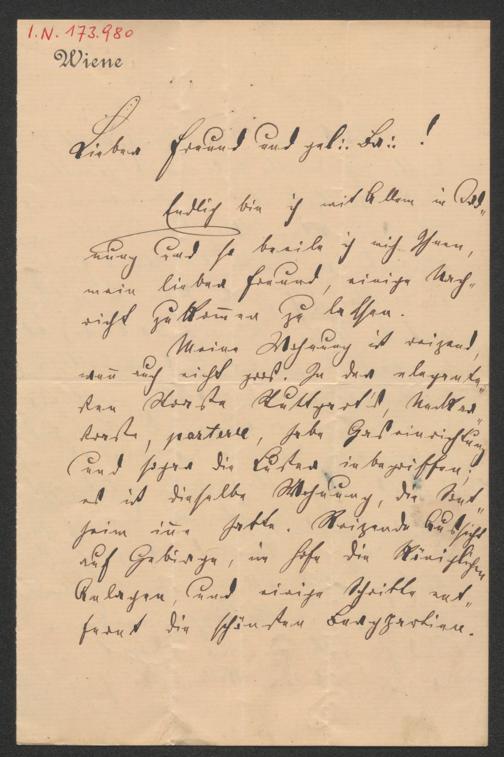 I.N. 173.980
Wiene
Lieber Freund und gel:. Br:. !
Endlich bin ich mit Allem in Ord-
nung und so beeile ich mich Ihnen,
mein lieber Freund, einige Nach-
richt zukommen zu lassen.
Meine Wohnung ist reizend,
wenn auch nicht gross. In der elegante-
sten Strasse Stuttgart's, Neckar-
strasse, parterre, habe Gaseinrichtung
und sogar die Luster inbegriffen;
es ist dieselbe Wohnung, die Sont-
heim inne hatte. Reizende Aussicht
auf Gebirge, im Hofe die Königlichen
Anlagen, und einige Schritte ent-
fernt die schönsten Bergpartien.